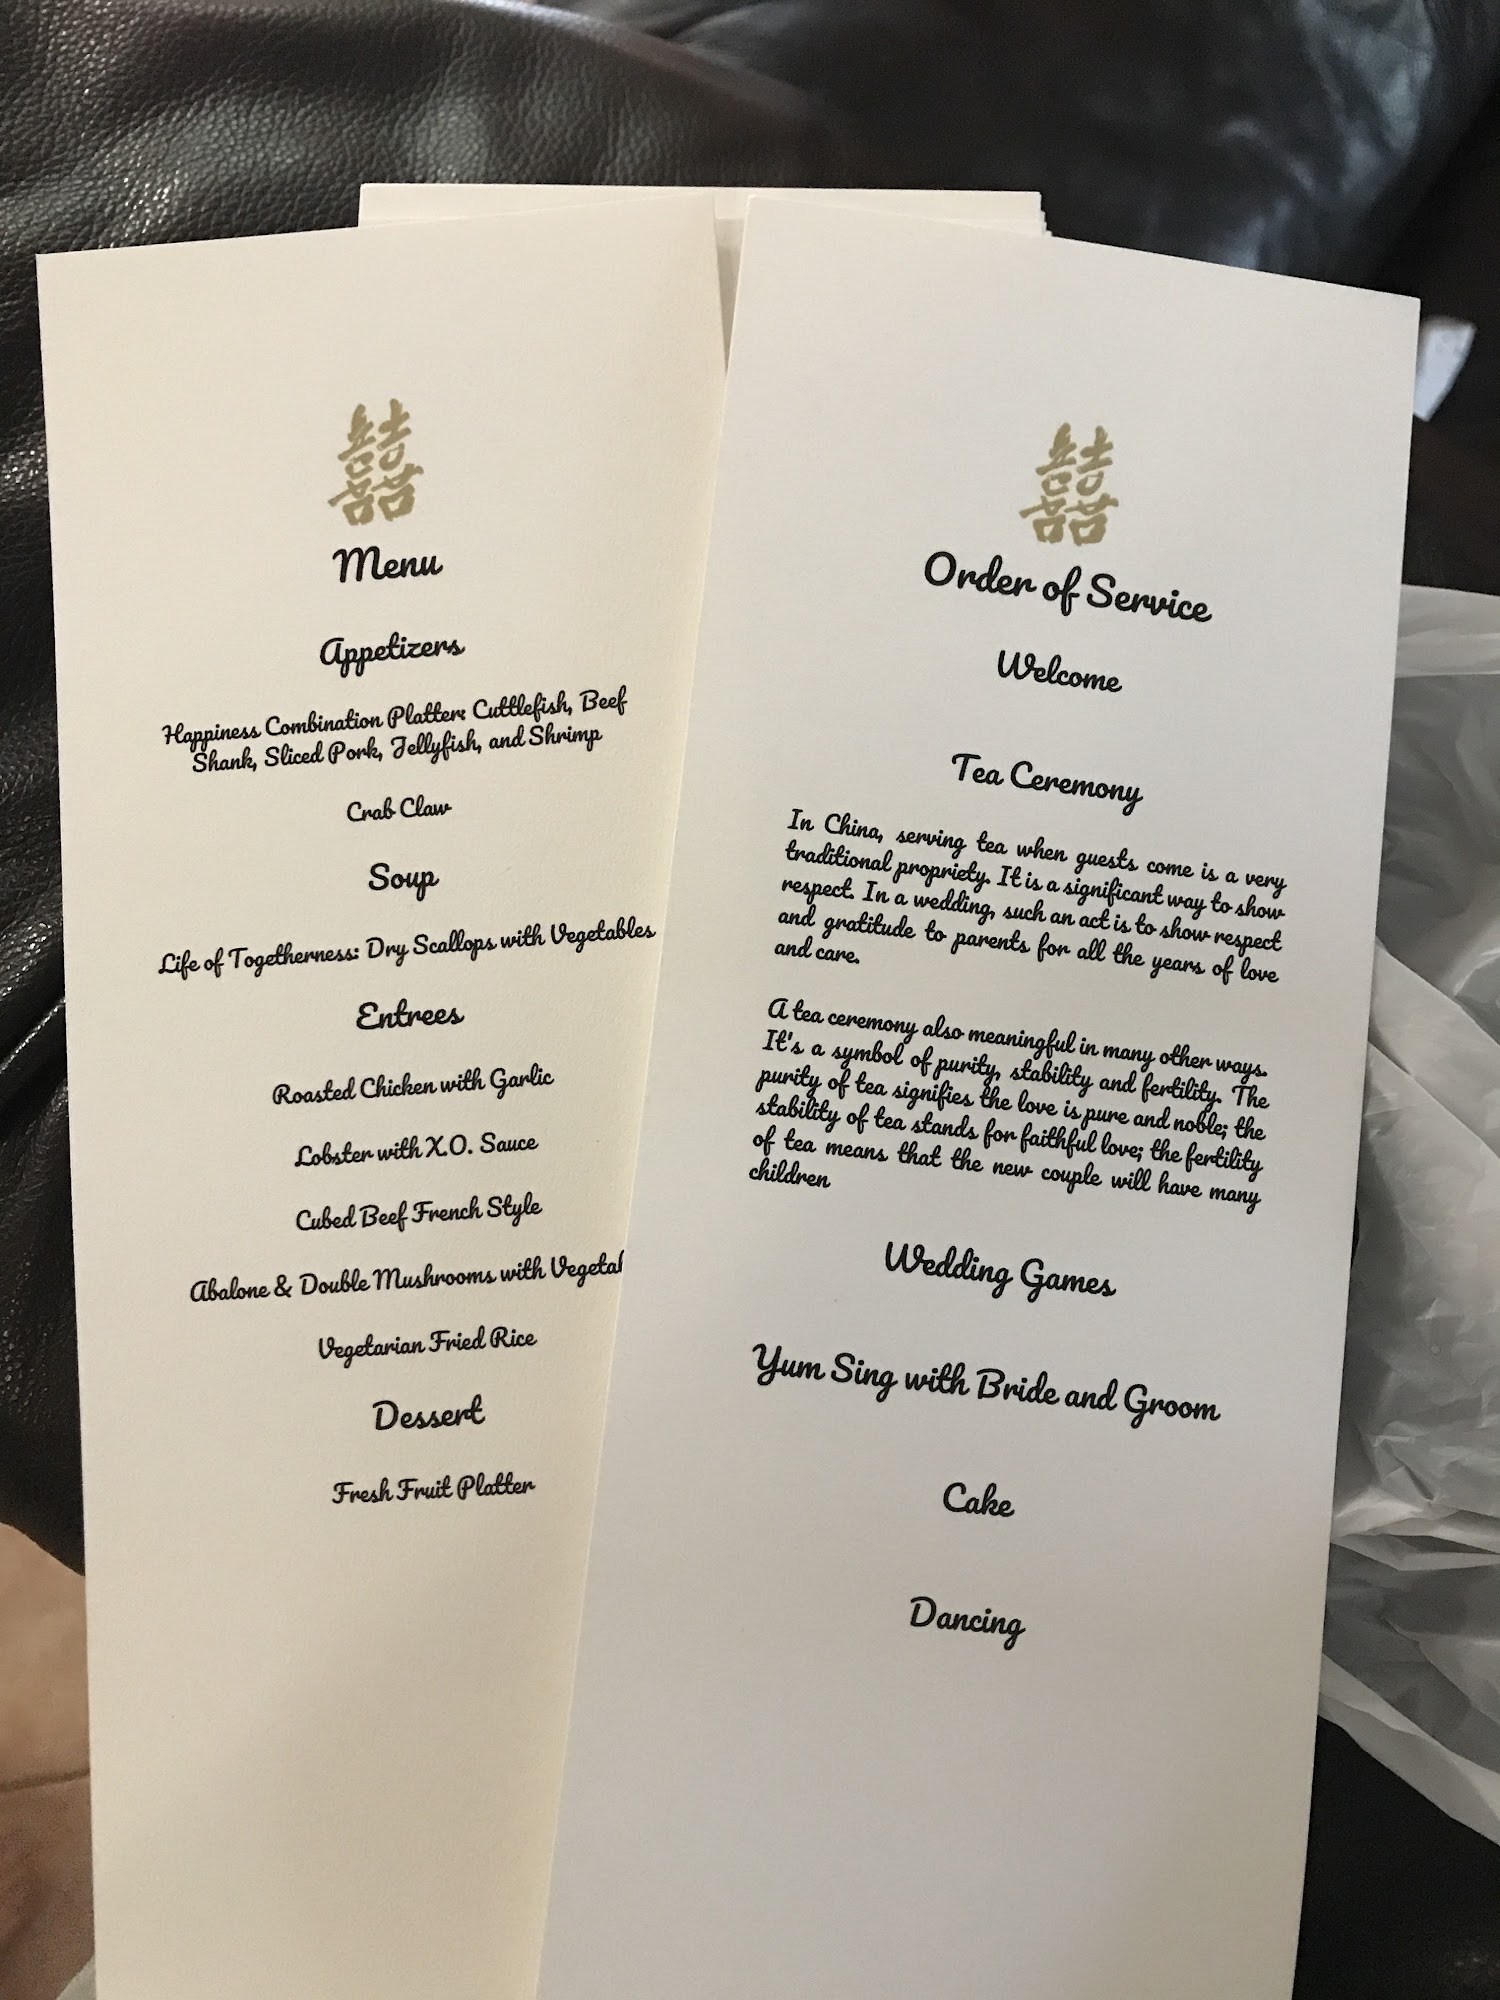 囍
Menu
Appetizers
Happiness Combination Platter: Cuttlefish, Beef
Shank, Sliced Pork, Jellyfish, and Shrimp
Crab Claw
Soup
Life of Togetherness: Dry Scallops with Vegetables
Entrees
Roasted Chicken with Garlic
Lobster with X.O. Sauce
Cubed Beef French Style
Abalone & Double Mushrooms with
Vegetarian Fried Rice
Dessert
Fresh Fruit Platter
囍
Order of Service
Welcome
Tea Ceremony
In China, serving tea when guests come is a very
traditional propriety. It is a significant way to show
respect. In a wedding, such an act is to show respect
and gratitude to parents for all the years of love
and care.
A tea ceremony also meaningful in many other ways.
It's a symbol of purity, stability and fertility. The
purity of tea signifies the love is pure and noble; the
stability of tea stands for faithful love; the fertility
of tea means that the new couple will have many
children
Wedding Games
Yum Sing with Bride and Groom
Cake
Dancing